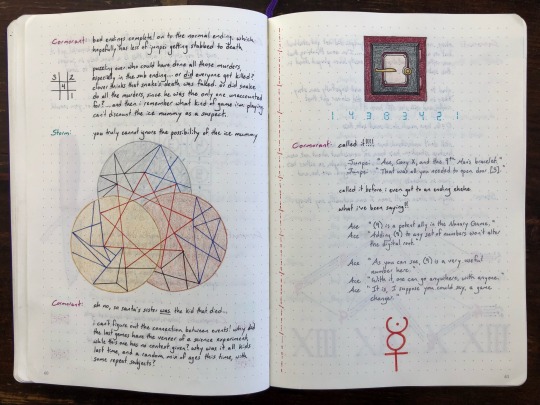 Cormorant: bad endings complete! on to the normal ending, which
hopefully has less of junpei getting stabbed to death
puzzling over who could have done all those murders,
especially in the sub ending... or did everyone get killed?
clover thinks that snake's death was faked. did snake
do all the murders, since he was the only one unaccounted
for? ...and then i remember what kind of game i'm playing.
can't discount the ice mummy as a suspect.
3 2
4
1
Storm: you truly cannot ignore the possibility of the ice mummy
Cormorant: oh no, so santa's sister was the kid that died...
i can't figure out the connection between events! why did
the last games have the veneer of a science experiment,
while this one has no context given? why was it all kids
last time, and a random mix of ages this time, with
some repeat subjects?
1 4 3 8 3 4 2 1
Cormorant: called it!!!!
Junpei: "Ace, Guy X, and the 9th Man's bracelet."
Junpei: "That was all you needed to open door [3]."
called it before i even got to an ending hehe
what i've been saying!!
Ace "(9) is a potent ally in the Nonary Game."
Ace "Adding (9) to any set of numbers won't alter
the digital root."
Ace "As you can see, (9) is a very useful
number here."
Ace "With it, one can go anywhere, with anyone."
Ace "It is, I suppose you could say, a game
changer."